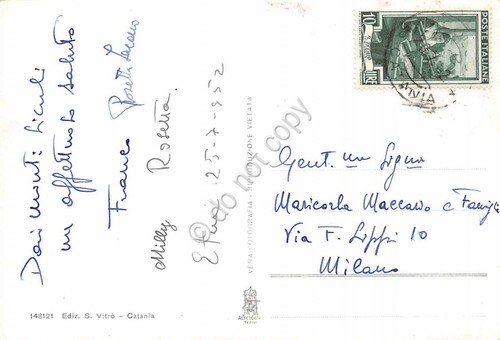 Dai monti Siculi
un affettuoso saluto
Franco Rosetta Laccano
Milly Rosetta
Etna 25-7-952
VERA FOTOGRAFIA - RIPRODUZIONE VIETATA
148121 Ediz. S. Vitrò - Catania
POSTE ITALIANE
10
LIRE
Gent. ma Signa
Maricarla Maccario e Famigl
Via F. Lippi 10
Milano
© do not copy